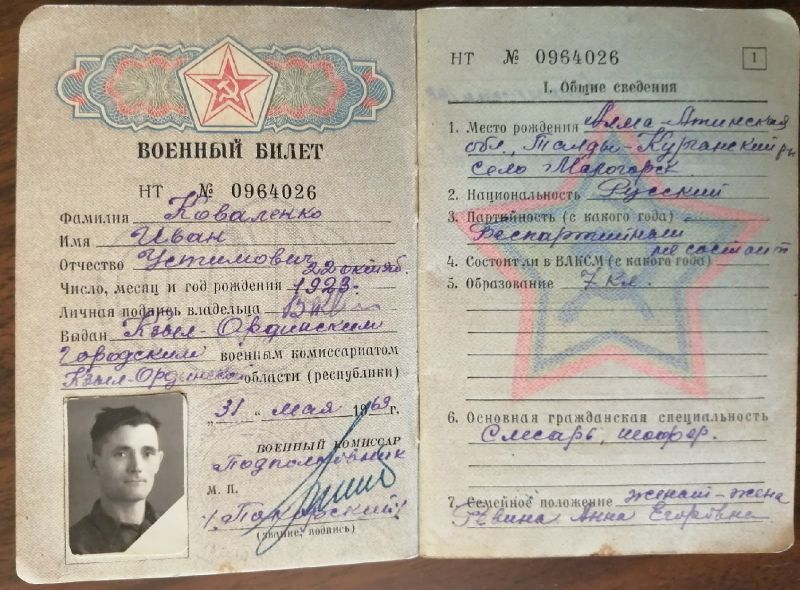 ВОЕННЫЙ БИЛЕТ
НТ № 0964026
Фамилия Коваленко
Имя Иван
Отчество Устимович
Число, месяц и год рождения 22 октяб. 1923.
Личная подпись владельца
Выдан Кзыл-Ординским
городским военным комиссариатом
Кзыл-Ординской области (республики)
„31“ мая 1969 г.
ВОЕННЫЙ КОМИССАР
Подполковник
М. П.
(звание, подпись)
НТ № 0964026
1
I. Общие сведения
1. Место рождения Алма-Атинская
обл., Талды-Курганский р-н
село
2. Национальность Русский
3. Партийность (с какого года)
Беспартийный
4. Состоит ли в ВЛКСМ (с какого года) не состоит
5. Образование 7 кл.
6. Основная гражданская специальность
Слесарь, шофер.
7. Семейное положение женат-жена
Анна Егоровна